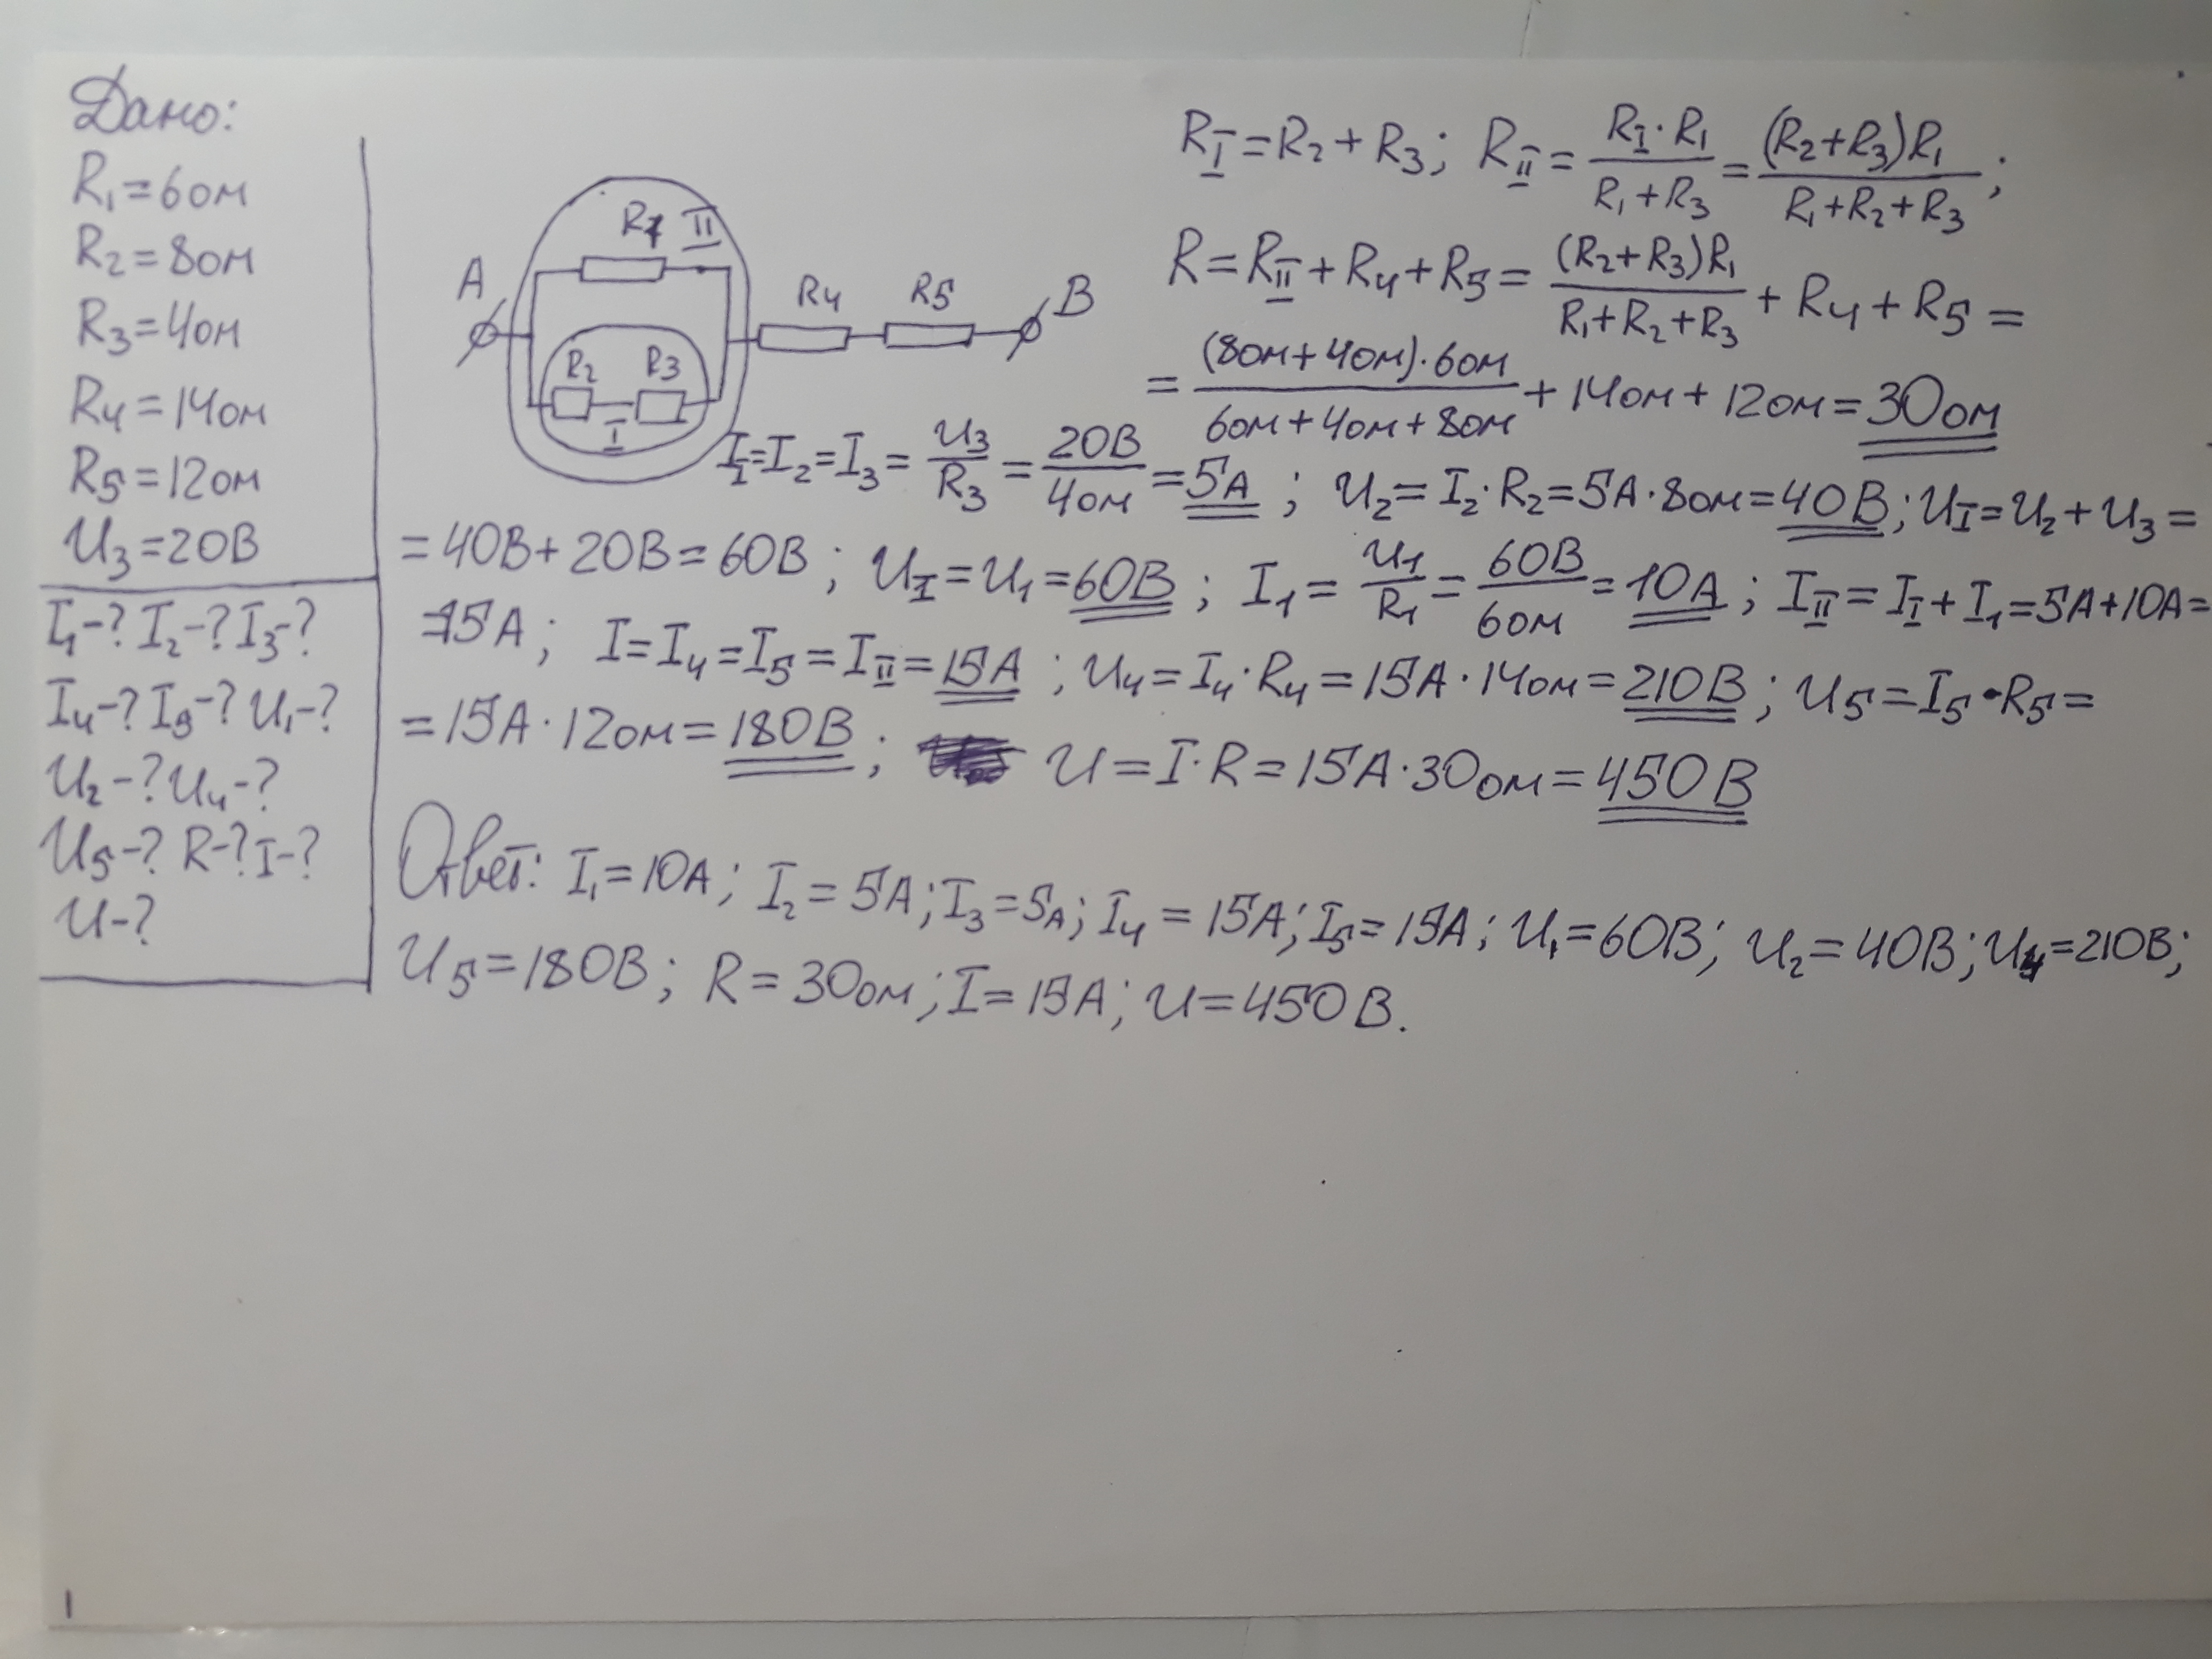 Дано:
R₁=6ом
R₂=8ом
R₃=4ом
R₄=14ом
R₅=12ом
U₃=20В
I₁-? I₂-? I₃-?
I₄-? I₅-? U₁-?
U₂-? U₄-?
U₅-? R-? I-?
U-?
A R1 II R4 R5 B
R2 R3
I
R_I=R₂+R₃; R_II=(R_I·R₁)/(R₁+R₃)=((R₂+R₃)R₁)/(R₁+R₂+R₃);
R=R_II+R₄+R₅=((R₂+R₃)R₁)/(R₁+R₂+R₃)+R₄+R₅=
=((8ом+4ом)·6ом)/(6ом+4ом+8ом)+14ом+12ом=30ом
I_I=I₂=I₃=U₃/R₃=20В/4ом=5А; U₂=I₂·R₂=5А·8ом=40В; U_I=U₂+U₃=
=40В+20В=60В; U_I=U₁=60В; I₁=U₁/R₁=60В/6ом=10А; I_II=I_I+I₁=5А+10А=
=15А; I=I₄=I₅=I_II=15А; U₄=I₄·R₄=15А·14ом=210В; U₅=I₅·R₅=
=15А·12ом=180В; U=I·R=15А·30ом=450В
Ответ: I₁=10А; I₂=5А; I₃=5А; I₄=15А; I₅=15А; U₁=60В; U₂=40В; U₄=210В;
U₅=180В; R=30ом; I=15А; U=450В.
1